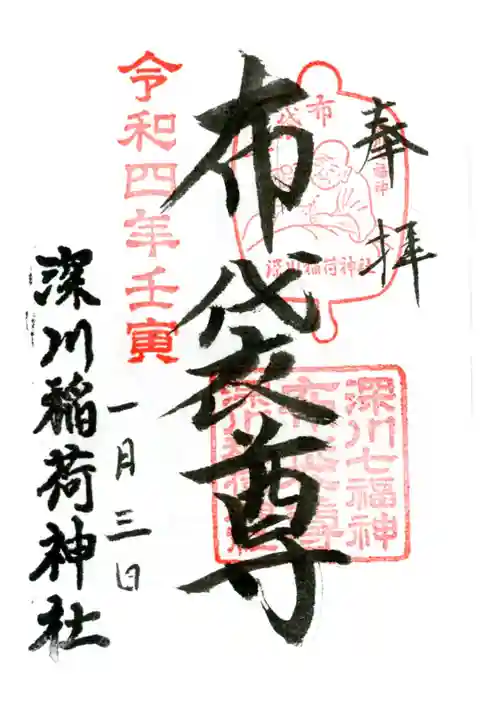 奉拝
布袋
福神
深川稲荷神社
布袋尊
深川七福神
布袋尊
深川稲荷神社
令和四年壬寅
一月三日
深川稲荷神社